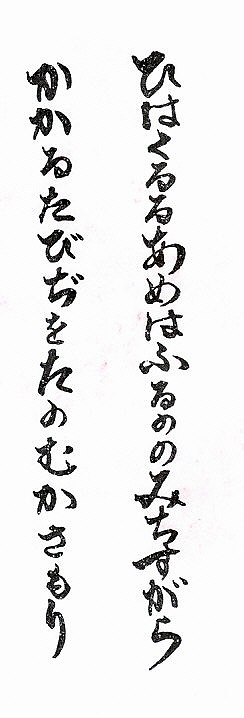 ひはくるるあめはふるののみちすがら
かかるたびぢをたのむかさもり